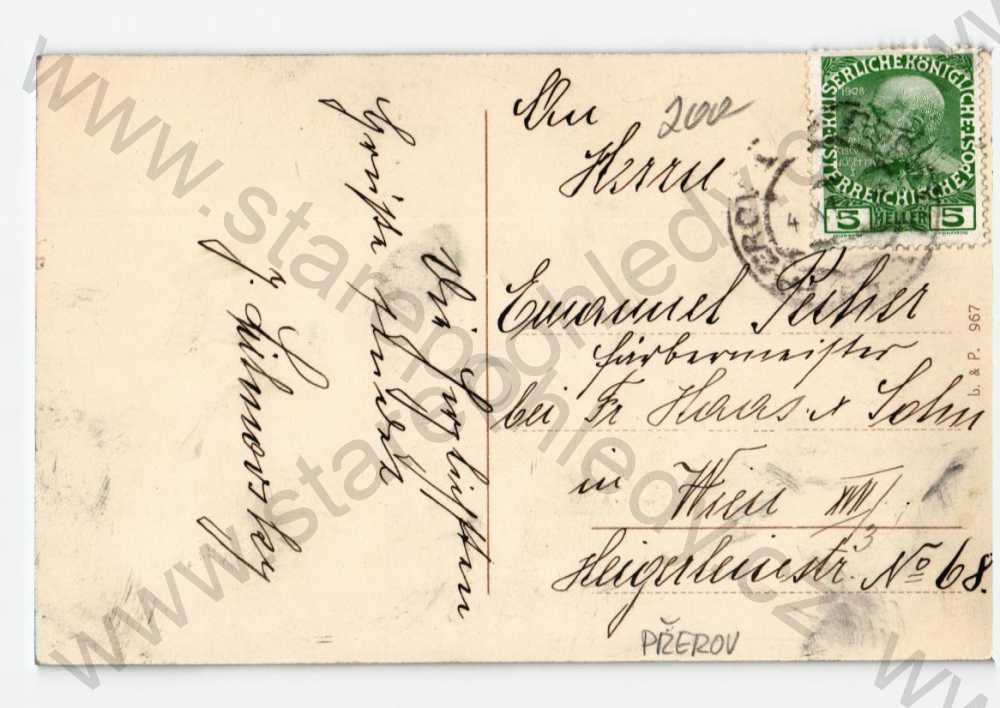 Die herzlichsten
Grüße sendet
J.
An
Herrn
Emanuel Pecher
Färbermeister
bei Fr Haas & Sohn
in Wien XVIII/3
Heigerleinstr. No 68.
200
KAISERLICHE KÖNIGLICHE ÖSTERREICHISCHE
1908
5 HELLER 5
L. & P. 967
PŘEROV
www.starepohledy.cz
www.starepohledy.cz